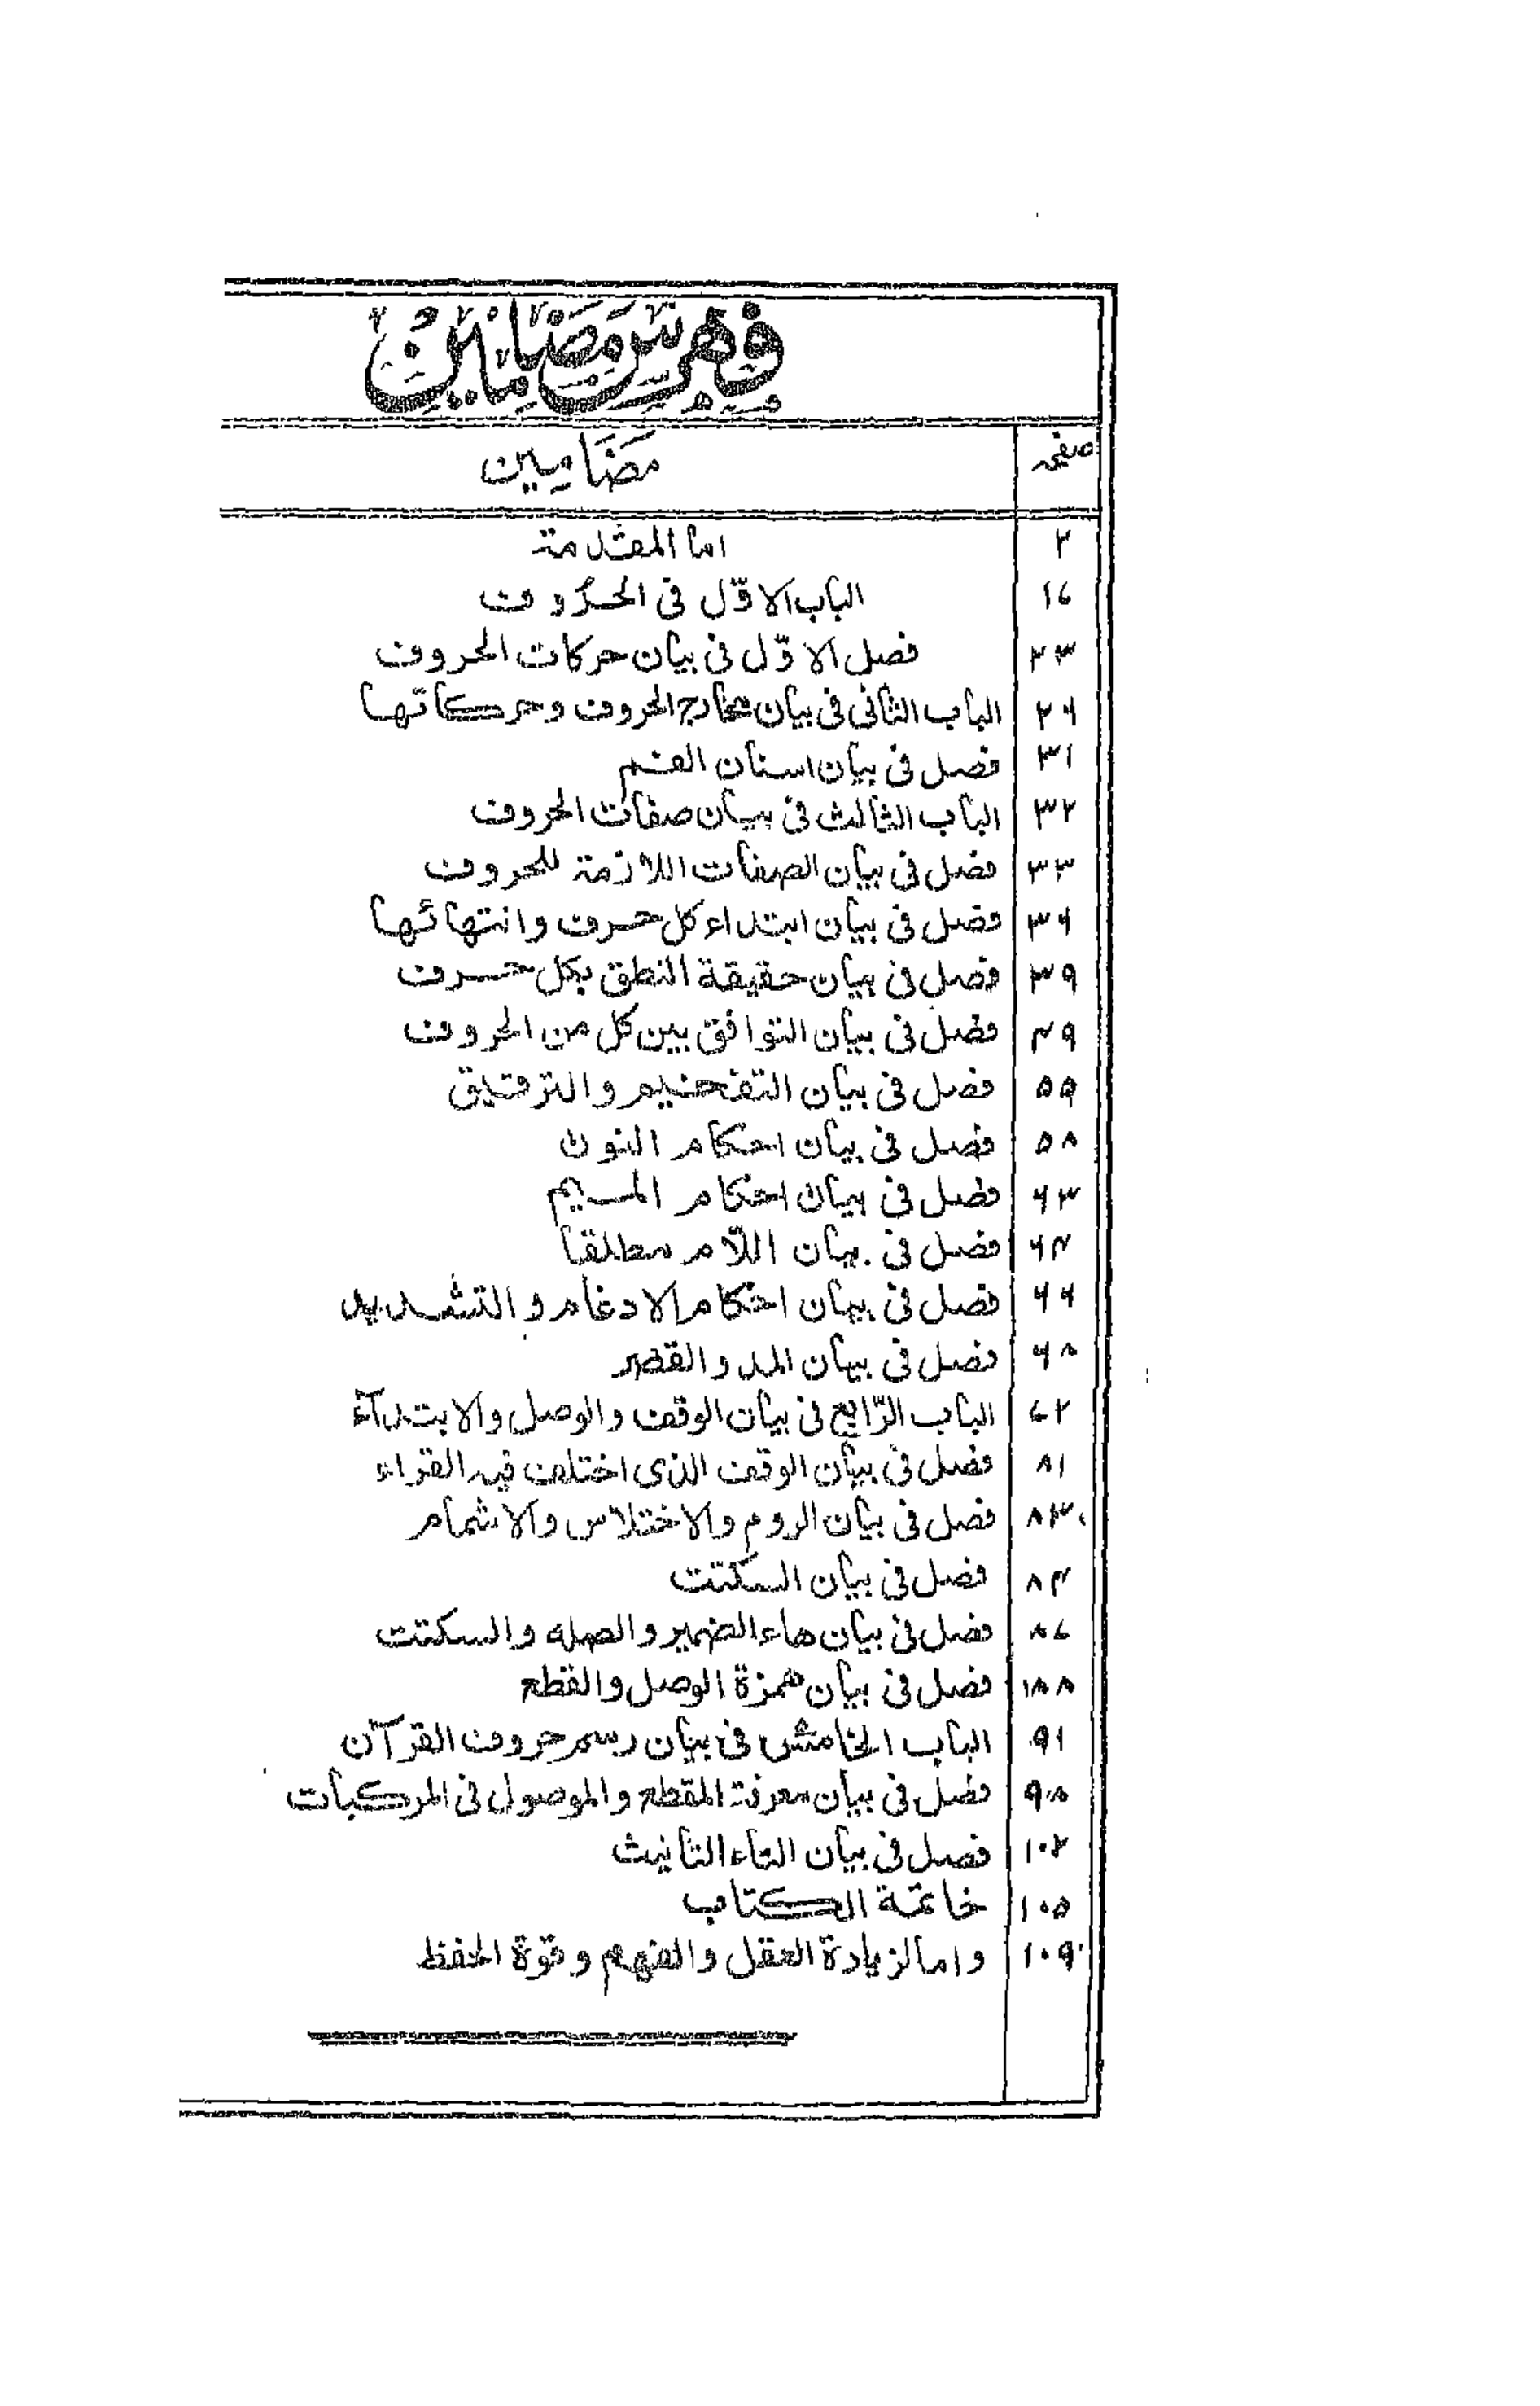 فِهرِسِ مَضَامِين
صفحہ مَضَامِين
۲ اما المقدمة
۱۷ الباب الاوّل فى الحروف
۲۳ فصل الاوّل فى بيان حركات الحروف
۲۶ الباب الثانى فى بيان مخارج الحروف وحركاتها
۳۱ فصل فى بيان اسنان الفم
۳۲ الباب الثالث فى بيان صفات الحروف
۳۳ فصل فى بيان الصفات اللازمة للحروف
۳۶ فصل فى بيان ابتداء كل حرف وانتهائها
۳۹ فصل فى بيان حقيقة النطق بكل حرف
۴۹ فصل فى بيان التوافق بين كل من الحروف
۵۵ فصل فى بيان التفخيم والترقيق
۵۸ فصل فى بيان احكام النون
۶۳ فصل فى بيان احكام الميم
۶۴ فصل فى بيان اللّام مطلقا
۶۶ فصل فى بيان احكام الادغام والتشديد
۶۸ فصل فى بيان المد والقصر
۷۲ الباب الرّابع فى بيان الوقف والوصل والابتدآء
۸۱ فصل فى بيان الوقف الذى اختلف فيه القراء
۸۳ فصل فى بيان الروم والاختلاس والاشمام
۸۴ فصل فى بيان السكتت
۸۷ فصل فى بيان هاء الضمير والصله والسكتت
۸۸ فصل فى بيان همزة الوصل والقطع
۹۱ الباب الخامس فى بيان رسم حروف القرآن
۹۸ فصل فى بيان معرفة المقطع والموصول فى المركبات
۱۰۲ فصل فى بيان التاء التانيث
۱۰۵ خاتمة الكتاب
۱۰۹ واما لزيادة العقل والفهم وقوة الحفظ